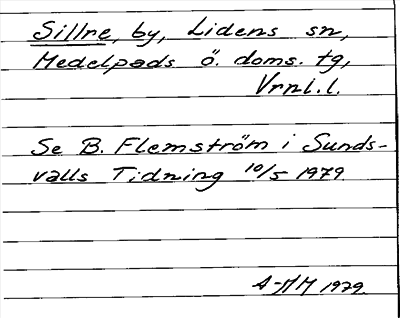 Sillre, by, Lidens sn,
Medelpads ö. doms. tg,
Vrnl.l.
Se B. Flemström i Sunds-
valls Tidning 10/5 1979.
A-AM 1979.